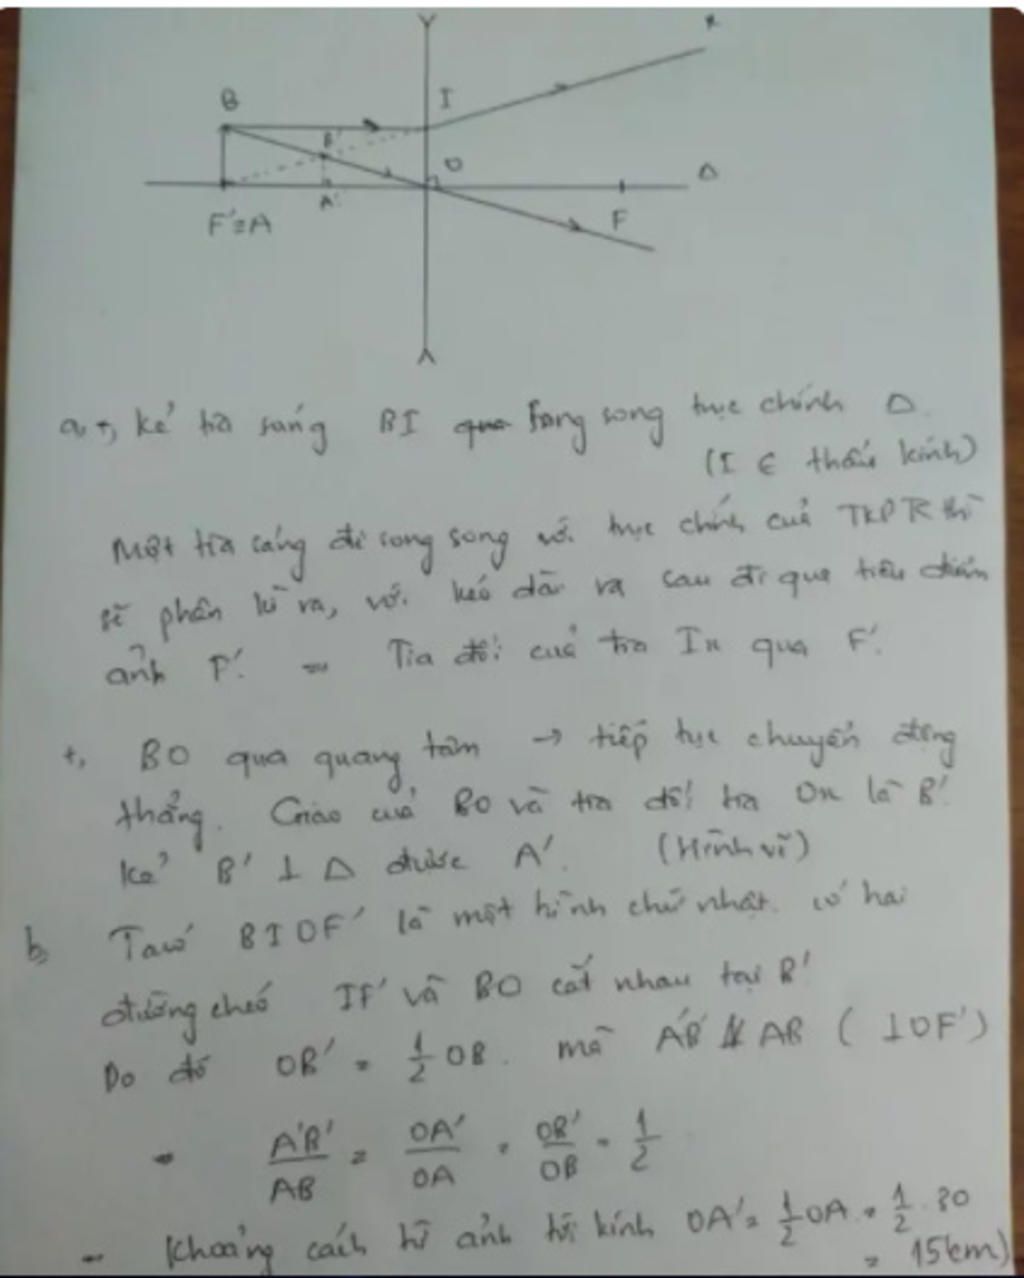 B
I
x
B'
O
Δ
A'
F
F'≡A
a, +, kẻ tia sáng BI song song trục chính Δ.
(I ∈ thấu kính)
Một tia sáng đi song song với trục chính của TKPK thì
sẽ phân kì ra, với kéo dài ra sau đi qua tiêu điểm
ảnh F'. Tia đối của tia Ix qua F'.
+, BO qua quang tâm → tiếp tục chuyển động
thẳng. Giao của BO và tia đối tia Ox là B'.
kẻ B' ⊥ Δ được A'. (Hình vẽ)
b, Ta có BIOF' là một hình chữ nhật. có hai
đường chéo IF' và BO cắt nhau tại B'
Do đó OB' = 1/2 OB. mà A'B' // AB (⊥OF')
A'B'/AB = OA'/OA = OB'/OB = 1/2
- Khoảng cách từ ảnh tới kính OA' = 1/2 OA = 1/2 . 30
= 15(cm)